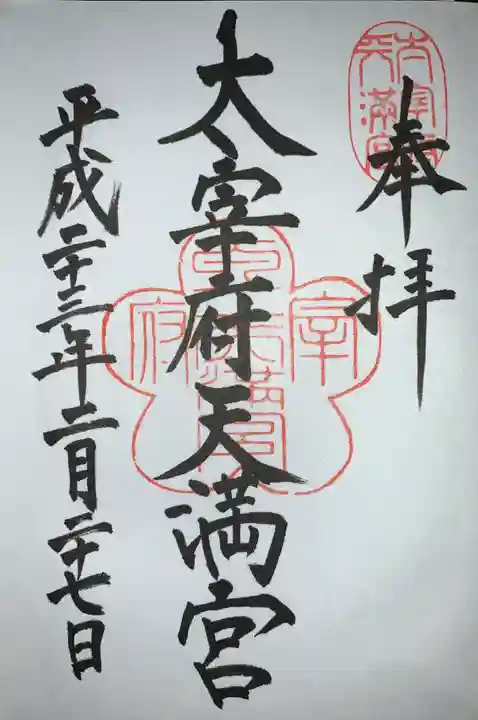 奉拝
太宰府天満宮
平成二十三年二月二十七日